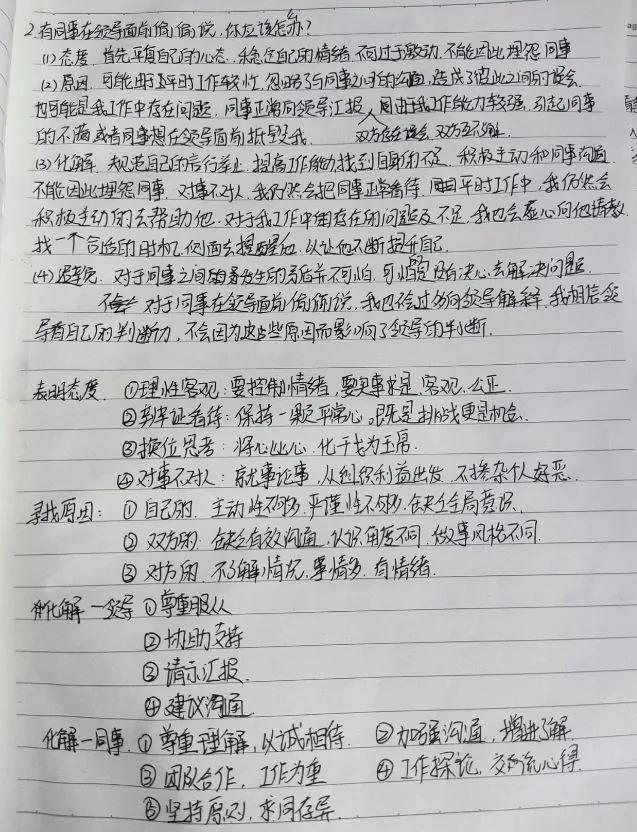 2.有同事在领导面前偏偏说,你应该怎办?
(1)态度.首先平复自己的心态,稳定自己的情绪,不可过于激动,不能因此埋怨同事
(2)原因.可能由于平时工作较忙,忽略了与同事之间的沟通,造成了彼此之间的误会.
也可能是我工作中存在问题,同事正常向领导汇报.
的不满或者同事想在领导面前抵毁我. 双方存在误会.双方互不了解.
(3)化解.规范自己的言行举止,提高工作能力,找到自身的不足.积极主动和同事沟通
不能因此埋怨同事,对事不对人,我仍然会把同事正常看待.平时工作中,我仍然会
积极主动的去帮助他.对于我工作中存在的问题及不足,我也会虚心向他请教.
找一个合适的时机,侧面去提醒他.以让他不断提升自己.
(4)避免.对于同事之间发生的矛盾并不可怕.可怕是没有决心去解决问题.
对于同事在领导面前偏偏说,我也不会过多向领导解释.我相信领
导有自己的判断力,不会因为这些原因而影响了领导的判断.
表明态度. ①理性客观:要控制情绪,要实事求是,客观,公正.
②辩证看待:保持一颗平常心.既是挑战更是机会.
③换位思考:将心比心.化干戈为玉帛.
④对事不对人:就事论事,从组织利益出发,不掺杂个人好恶.
寻找原因: ①自己的.主动性不够.严谨性不够.缺乏全局意识.
②双方的.缺乏有效沟通,认识角度不同.做事风格不同.
③对方的.不了解情况,事情多.有情绪.
化解一领导 ①尊重服从
②协助支持
③请示汇报.
④建议沟通
化解一同事. ①尊重理解,以诚相待. ②加强沟通,增进了解.
③团队合作,工作为重 ④工作探讨,交流心得.
⑤坚持原则,求同存异.